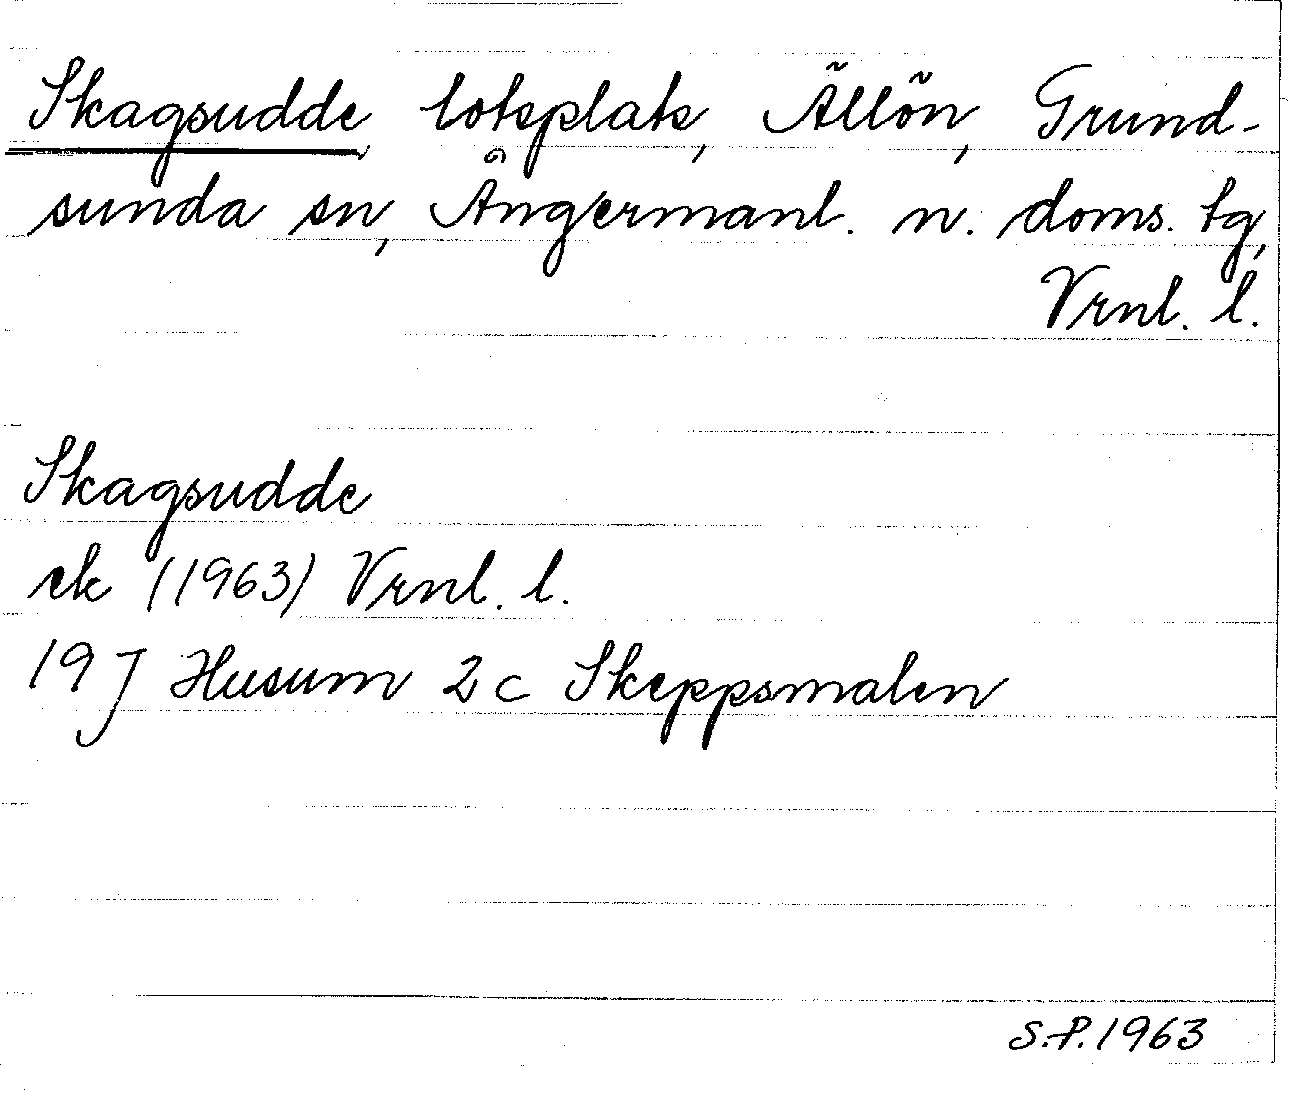 Skagsudde, lotsplats, Ällön, Grund-
sunda sn, Ångermanl. n. doms. tg,
Vrnl. l.
Skagsudde
ek (1963) Vrnl. l.
19 J Husum 2 c Skeppsmalen
S.P. 1963